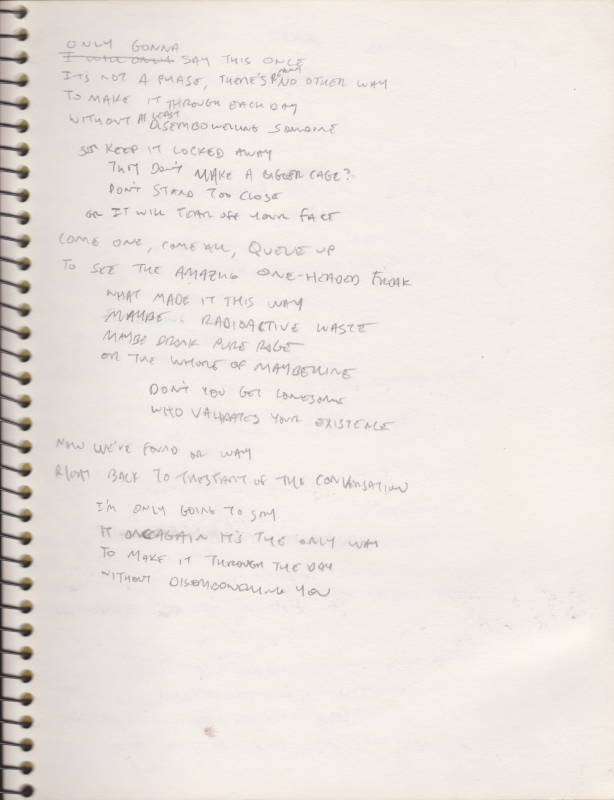 ONLY GONNA
I WILL ONLY SAY THIS ONCE
IT'S NOT A PHASE, THERE'S REALLY NO OTHER WAY
TO MAKE IT THROUGH EACH DAY
WITHOUT AT LEAST DISEMBOWELING SOMEONE
SO KEEP IT LOCKED AWAY
THEY DON'T MAKE A BIGGER CAGE?
DON'T STAND TOO CLOSE
OR IT WILL TEAR OFF YOUR FACE
COME ONE, COME ALL, QUEUE UP
TO SEE THE AMAZING ONE-HEADED FREAK
WHAT MADE IT THIS WAY
MAYBE RADIOACTIVE WASTE
MAYBE DRANK PURE RAGE
OR THE WHORE OF MAYBELLINE
DON'T YOU GET LONESOME
WHO VALIDATES YOUR EXISTENCE
NOW WE'VE FOUND OR WAY
RIGHT BACK TO THE START OF THE CONVERSATION
I'M ONLY GOING TO SAY
IT ONCE AGAIN IT'S THE ONLY WAY
TO MAKE IT THROUGH THE DAY
WITHOUT DISEMBOWELING YOU